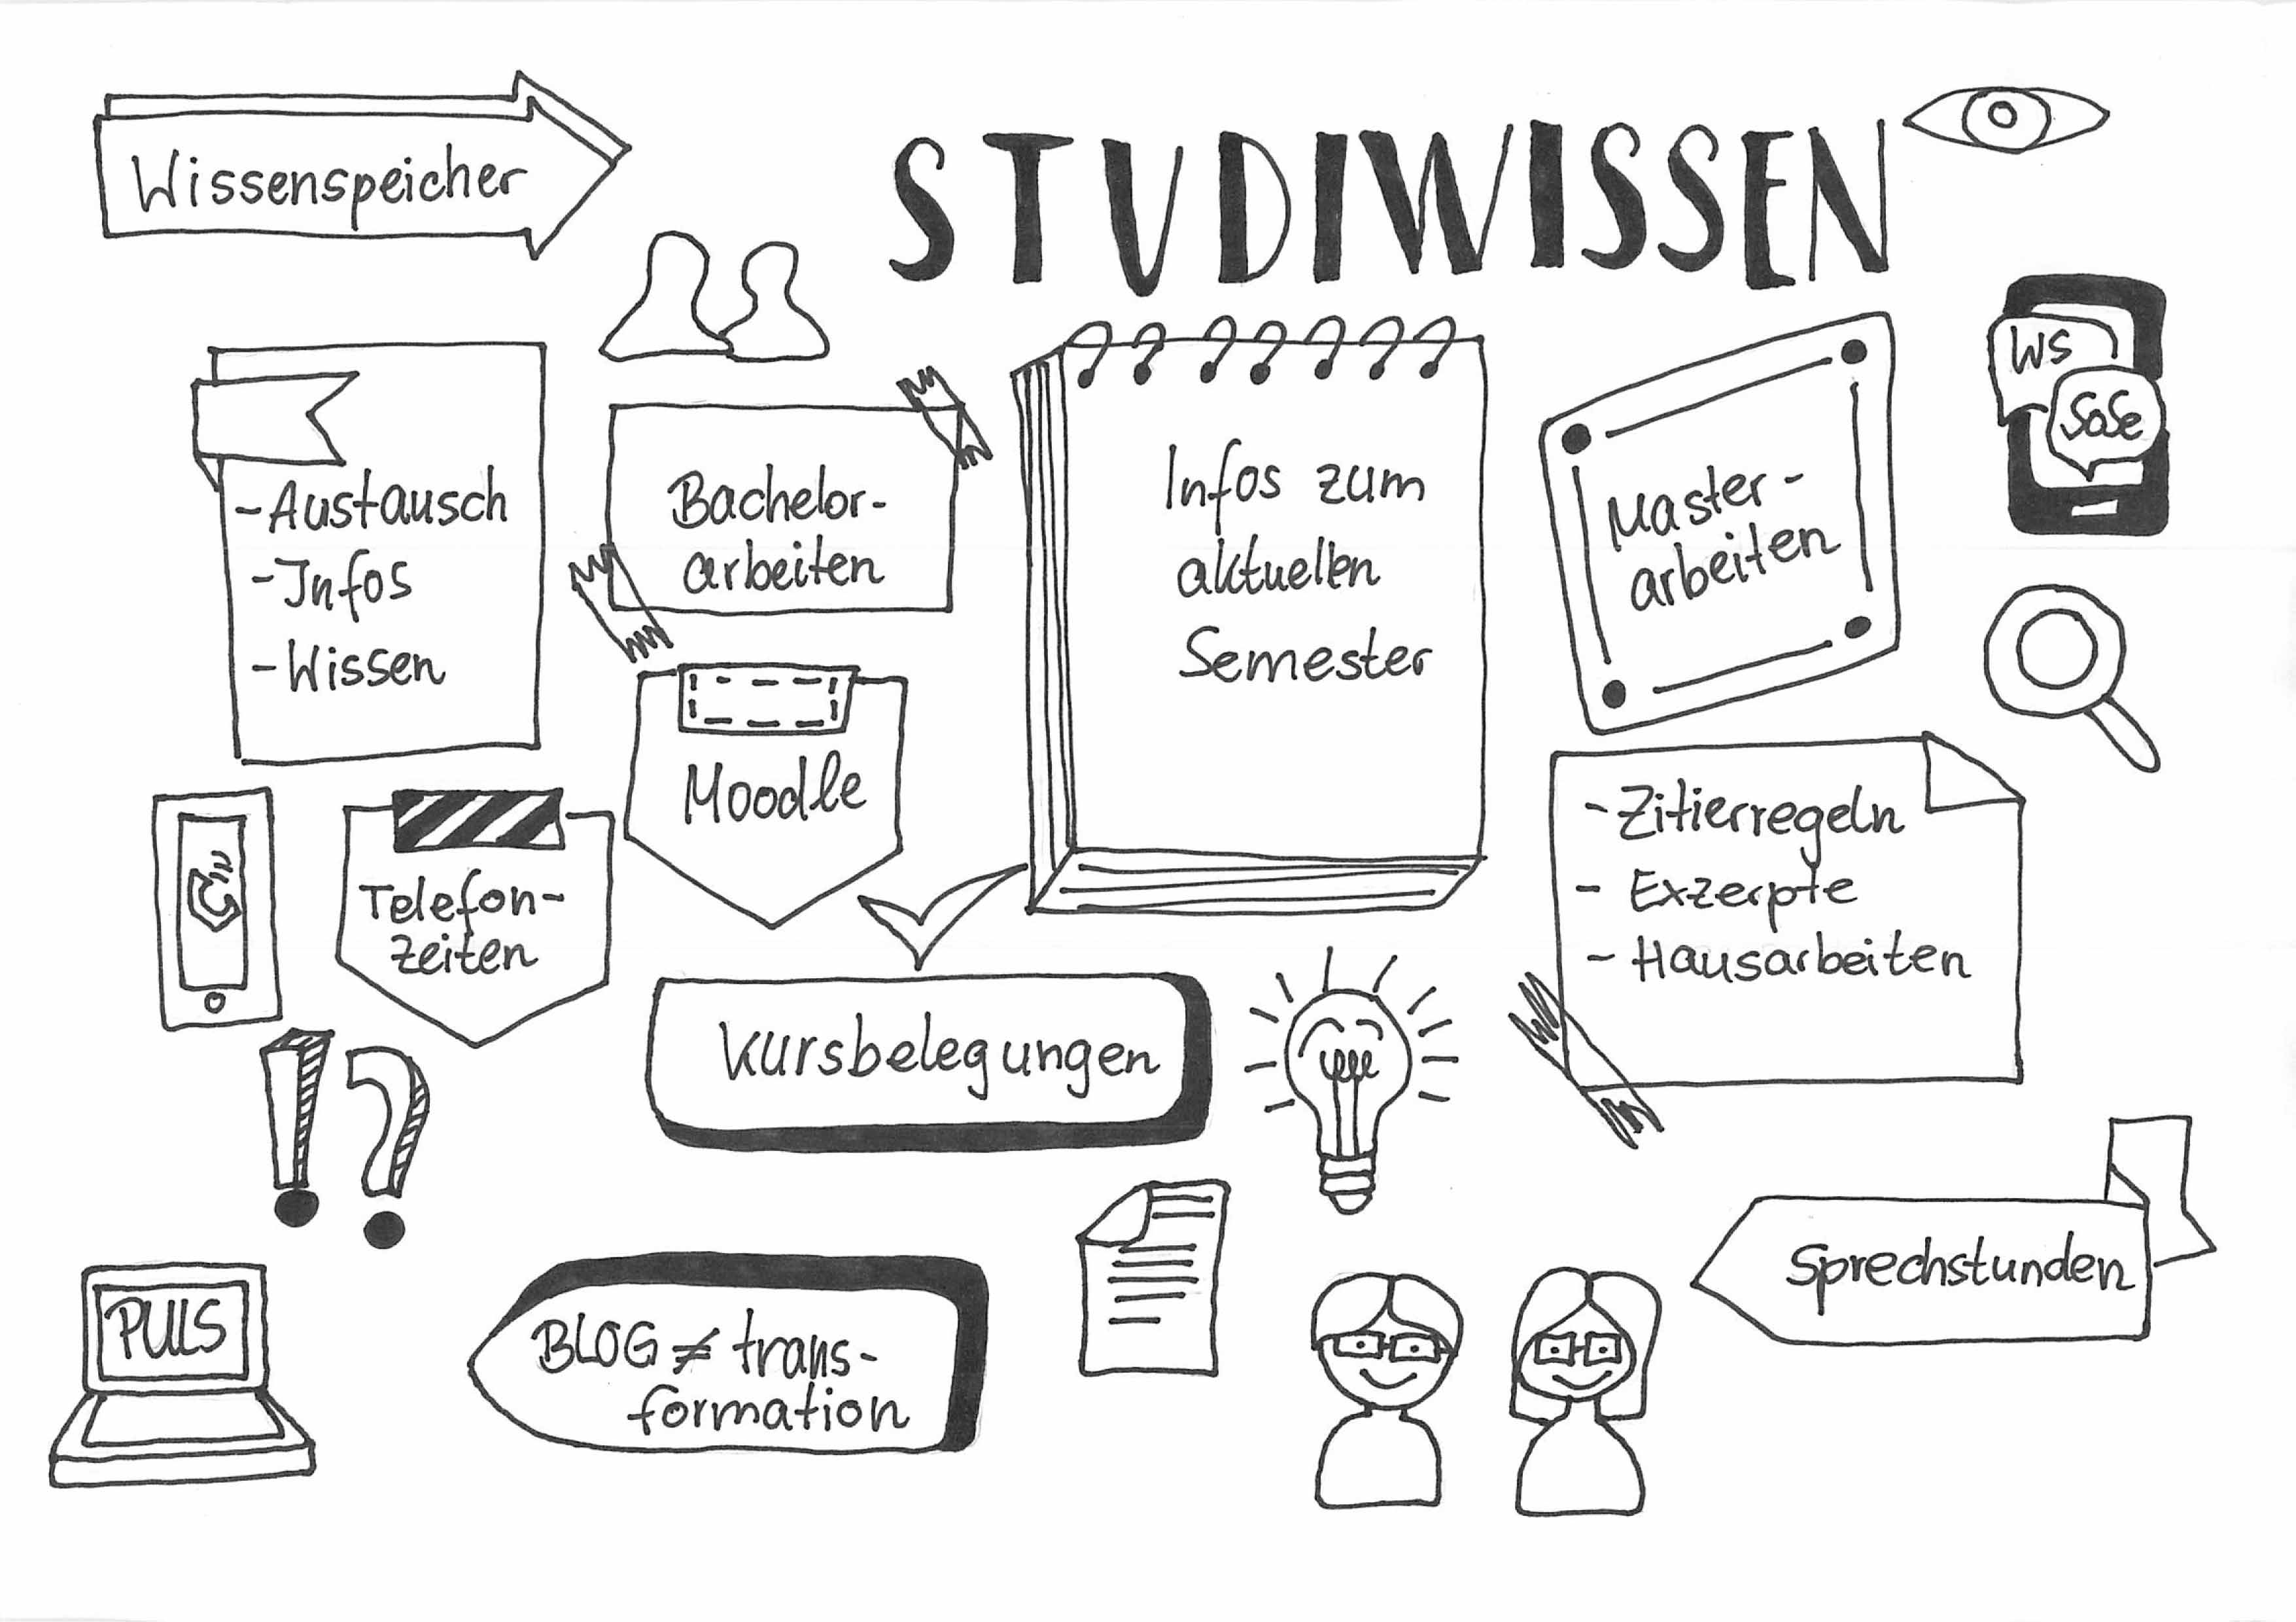 Wissenspeicher
STUDIWISSEN
WS
SoSe
-Austausch
-Infos
-Wissen
Bachelor-
arbeiten
Infos zum
aktuellen
Semester
Master-
arbeiten
Moodle
Telefon-
zeiten
-Zitierregeln
- Exzerpte
- Hausarbeiten
Kursbelegungen
!?
Sprechstunden
PULS
BLOG ≠ trans-
formation